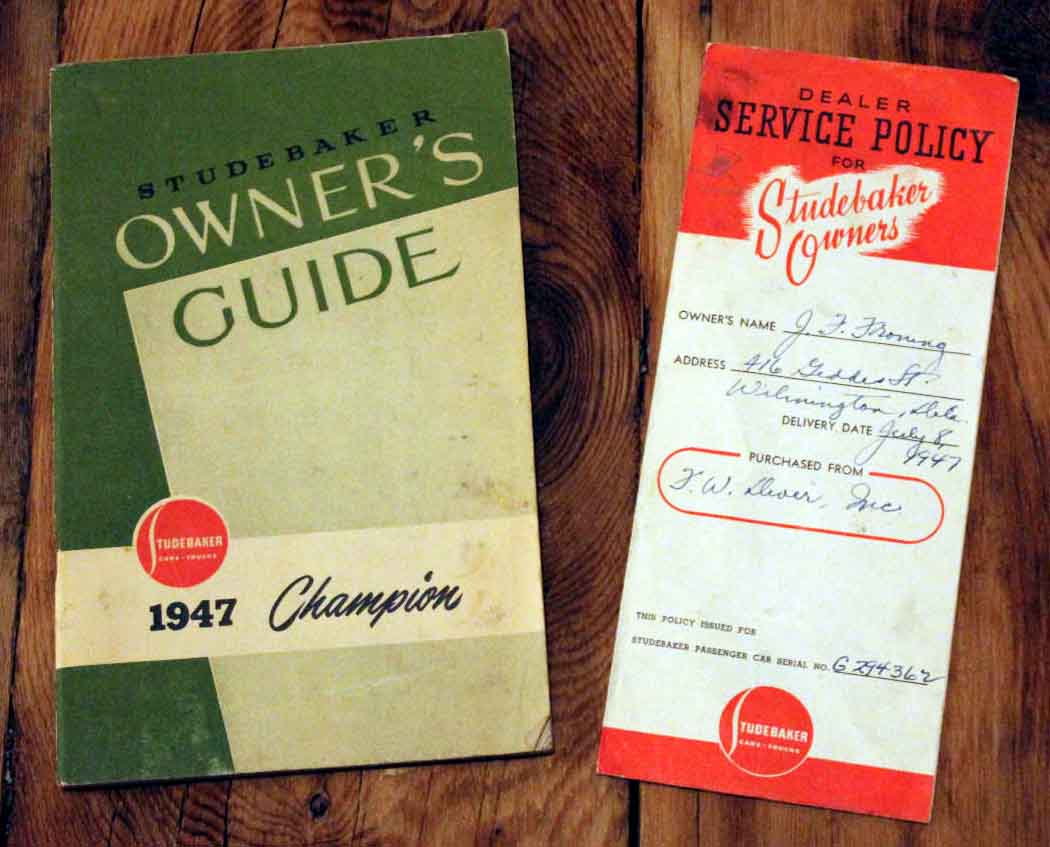 STUDEBAKER
OWNER'S
GUIDE
STUDEBAKER
CARS - TRUCKS
1947 Champion
DEALER
SERVICE POLICY
FOR
Studebaker
Owners
OWNER'S NAME J. F. Froning
ADDRESS 416 Geddes St.
Wilmington, Dela.
DELIVERY DATE July 8,
1947
PURCHASED FROM
F. W. Dever, Inc
THIS POLICY ISSUED FOR
STUDEBAKER PASSENGER CAR SERIAL NO. G 294362
STUDEBAKER
CARS - TRUCKS